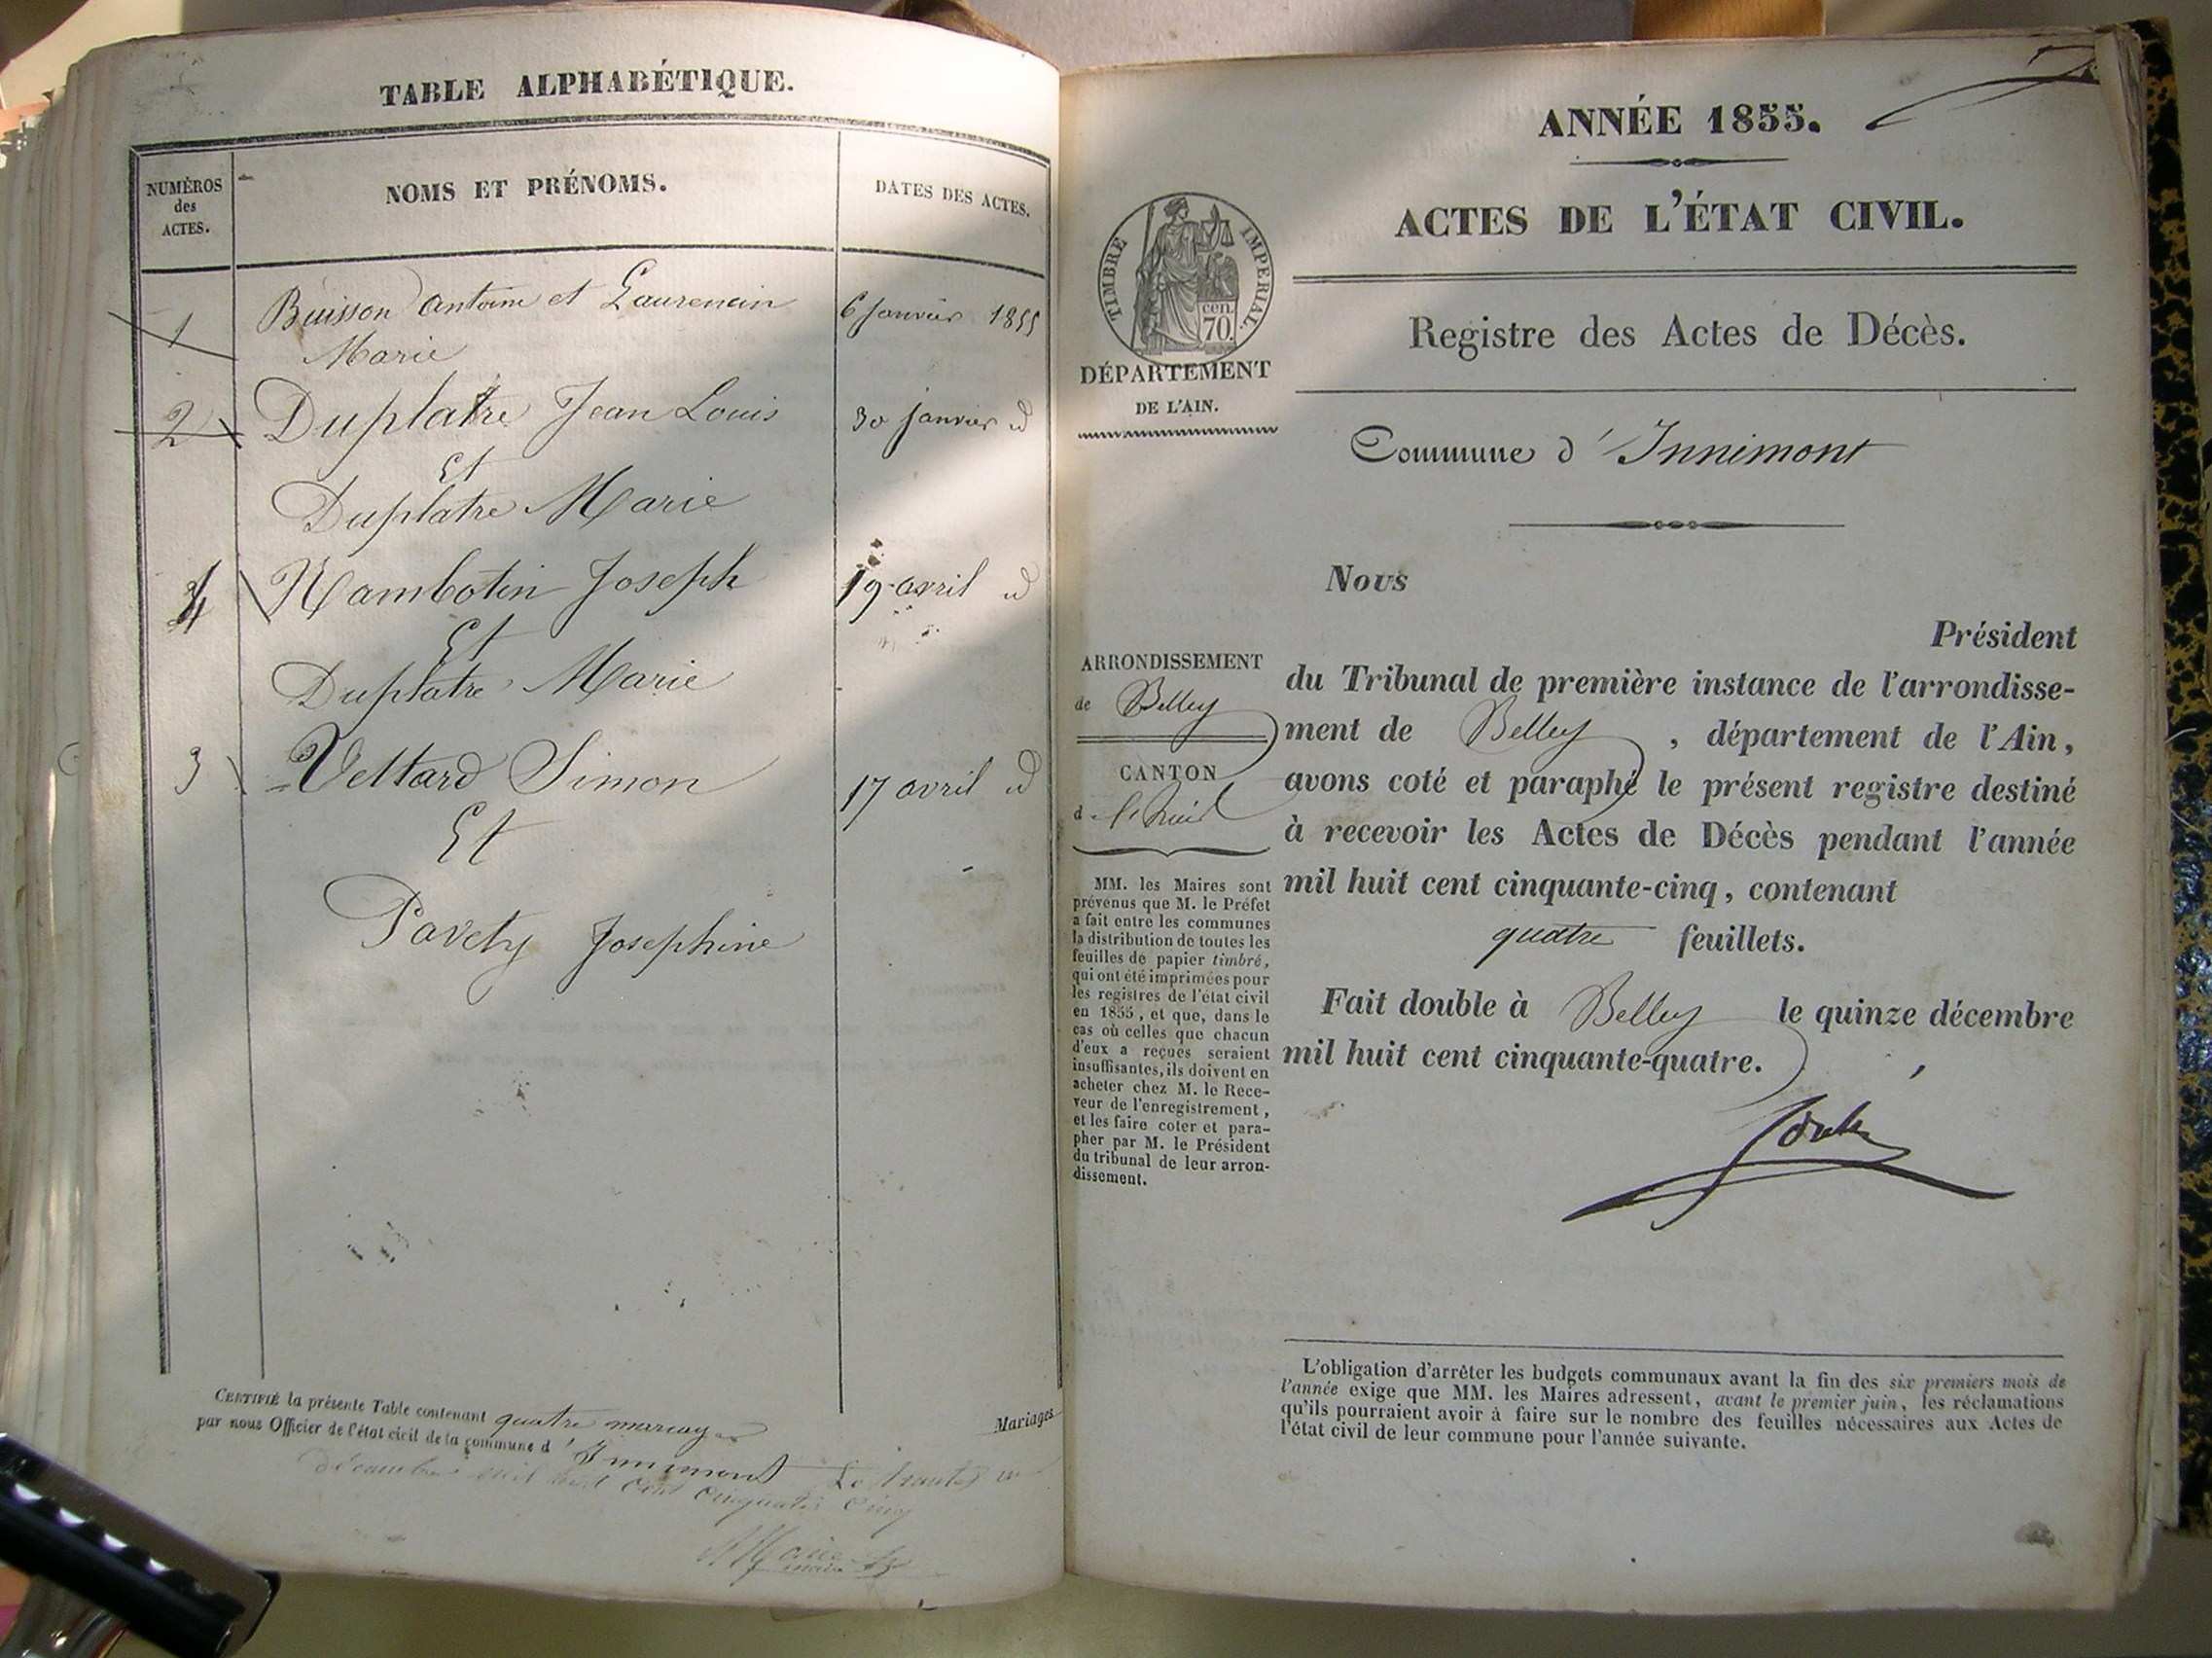 TABLE ALPHABÉTIQUE.
NUMÉROS
des
ACTES.
NOMS ET PRÉNOMS.
DATES DES ACTES.
1 Buisson Antoine et Laurencin 6 janvier 1855
Marie
2 Duplatre Jean Louis 30 janvier d
Et
Duplatre Marie
4 Nambotin Joseph 19 avril d
Et
Duplatre Marie
3 Vettard Simon 17 avril d
Et
Pavety Josephine
CERTIFIÉ la présente Table contenant quatre mariages Mariages
par nous Officier de l'état civil de la commune d'Innimont Le trente un
décembre mil huit cent cinquante cinq
ANNÉE 1855.
ACTES DE L'ÉTAT CIVIL.
TIMBRE IMPERIAL.
cen.
70.
DÉPARTEMENT
DE L'AIN.
Registre des Actes de Décès.
Commune d'Innimont
ARRONDISSEMENT
de Belley
CANTON
d
MM. les Maires sont
prévenus que M. le Préfet
a fait entre les communes
la distribution de toutes les
feuilles de papier timbré,
qui ont été imprimées pour
les registres de l'état civil
en 1855, et que, dans le
cas où celles que chacun
d'eux a reçues seraient
insuffisantes, ils doivent en
acheter chez M. le Rece-
veur de l'enregistrement,
et les faire coter et para-
pher par M. le Président
du tribunal de leur arron-
dissement.
Nous
Président
du Tribunal de première instance de l'arrondisse-
ment de Belley, département de l'Ain,
avons coté et paraphé le présent registre destiné
à recevoir les Actes de Décès pendant l'année
mil huit cent cinquante-cinq, contenant
quatre feuillets.
Fait double à Belley le quinze décembre
mil huit cent cinquante-quatre.
L'obligation d'arrêter les budgets communaux avant la fin des six premiers mois de
l'année exige que MM. les Maires adressent, avant le premier juin, les réclamations
qu'ils pourraient avoir à faire sur le nombre des feuilles nécessaires aux Actes de
l'état civil de leur commune pour l'année suivante.